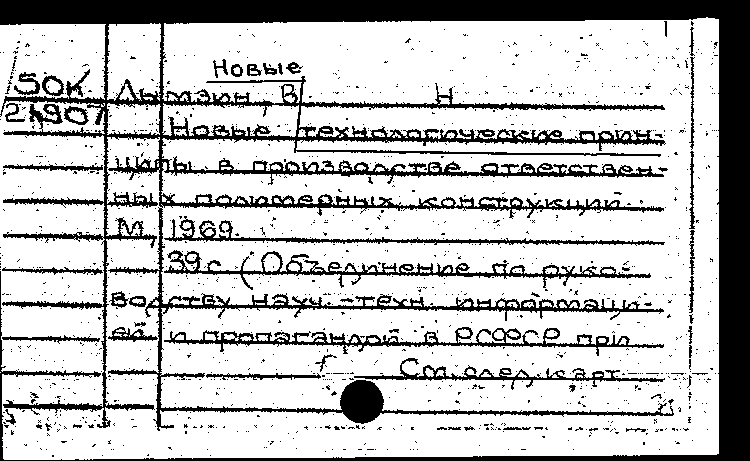 Новые
50К Лымзин, В Н
24907
Новые технологические прин-
ципы в производстве ответствен-
ных полимерных конструкций
М, 1969.
39с (Объединение по руко-
водству науч.-техн. информаци-
ей и пропагандой в РСФСР при
См. след. карт